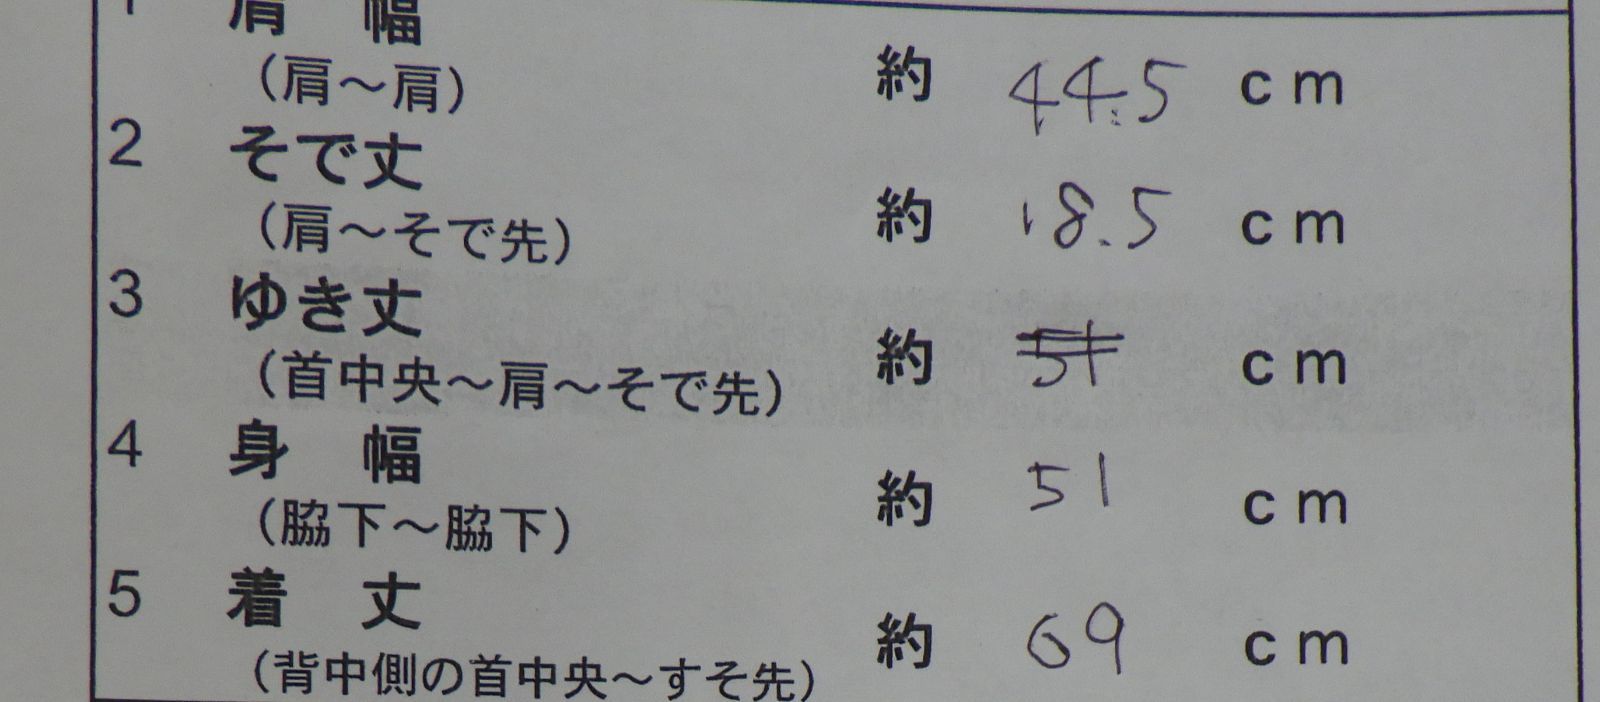 1 肩 幅
(肩～肩) 約 44.5 cm
2 そで丈
(肩～そで先) 約 18.5 cm
3 ゆき丈
(首中央～肩～そで先) 約 51 cm
4 身 幅
(脇下～脇下) 約 51 cm
5 着 丈
(背中側の首中央～すそ先) 約 69 cm